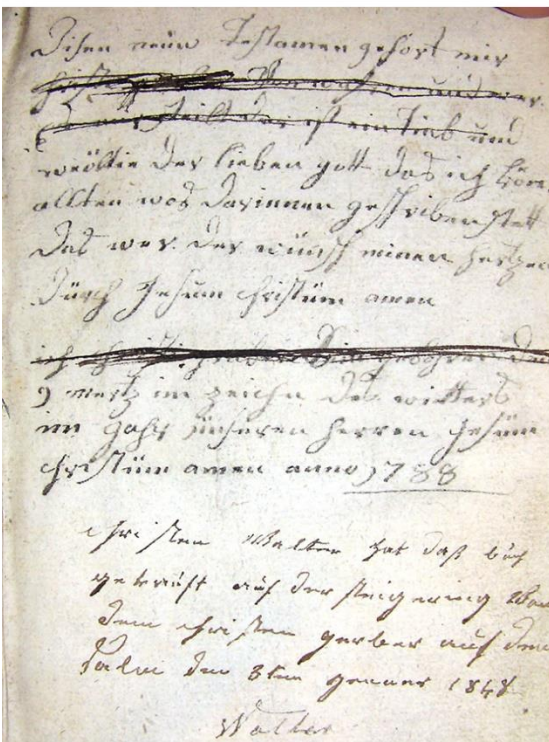 Disen neüw Testamen gehört mir
und wer
es mir stillt der ist ein Tieb und
weöltte der lieben gott das ich köne
allten was darinnen geschriben stett
das wer der wünsch minen hertzen
dürch Jesum christüm amen
ich gebohren den
9 mertz im zeichen des witters
im Jahr ünseren herren Jesüm
christüm amen anno 1788
christen Walter hat daß buch
gekauft auf der steigering Von
dem christen gerber auf dem
den 3ten genner 1848
Walter